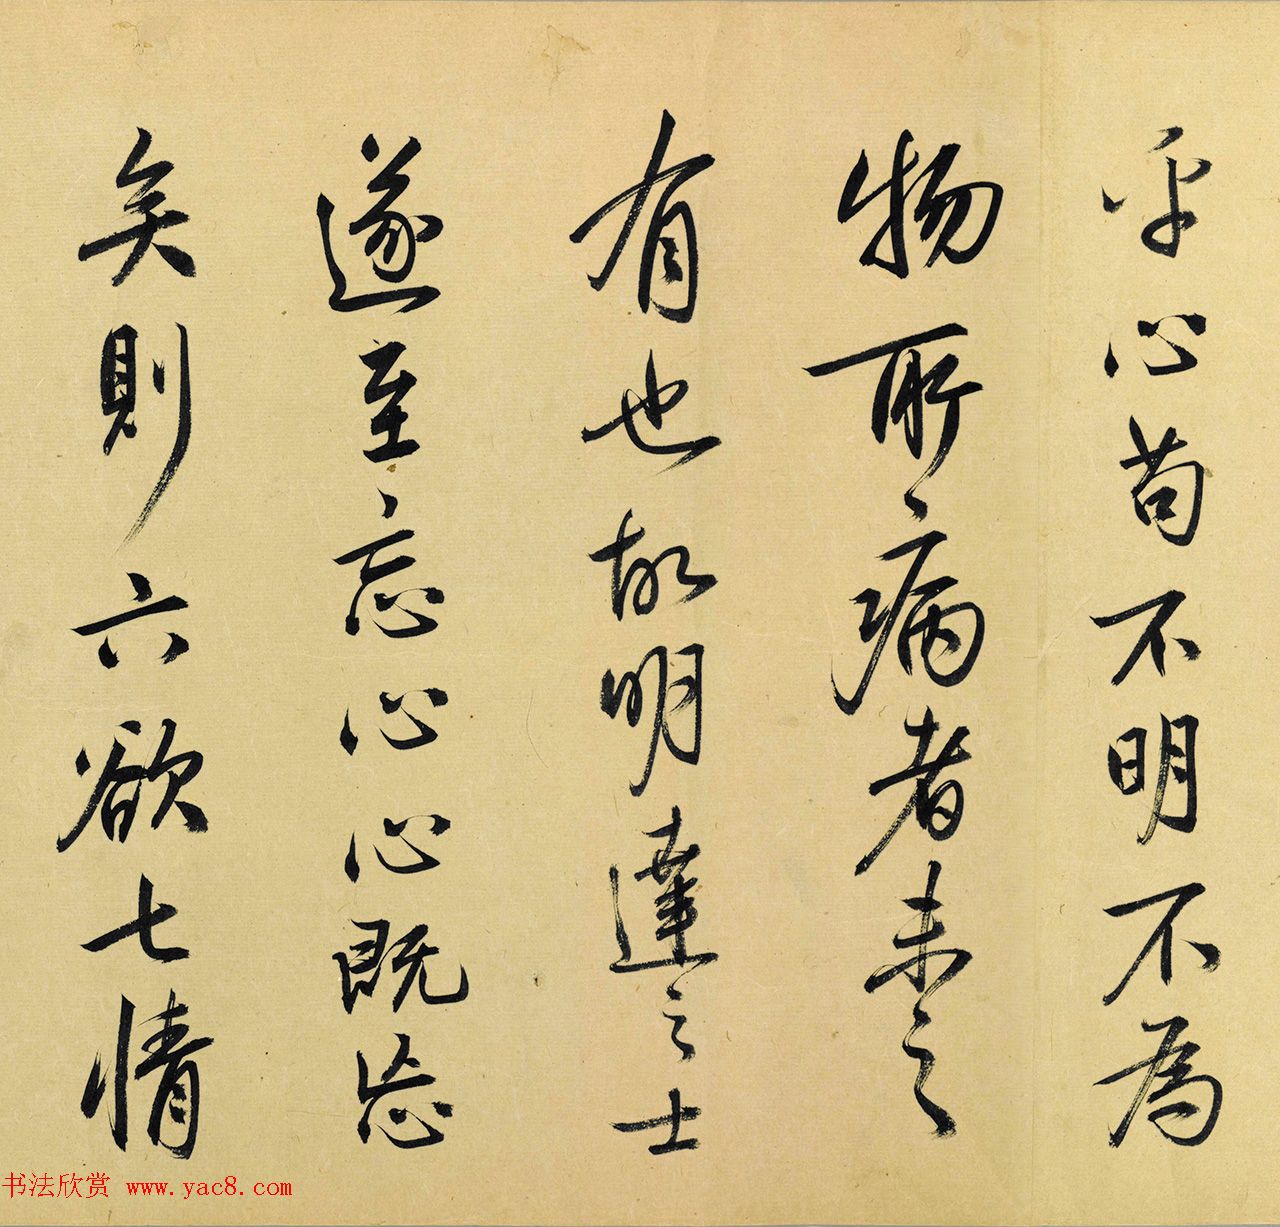 乎心苟不明不為
物所病者未之
有也故明達之士
遂至忘心心既忘
矣則六欲七情
书法欣赏 www.yac8.com